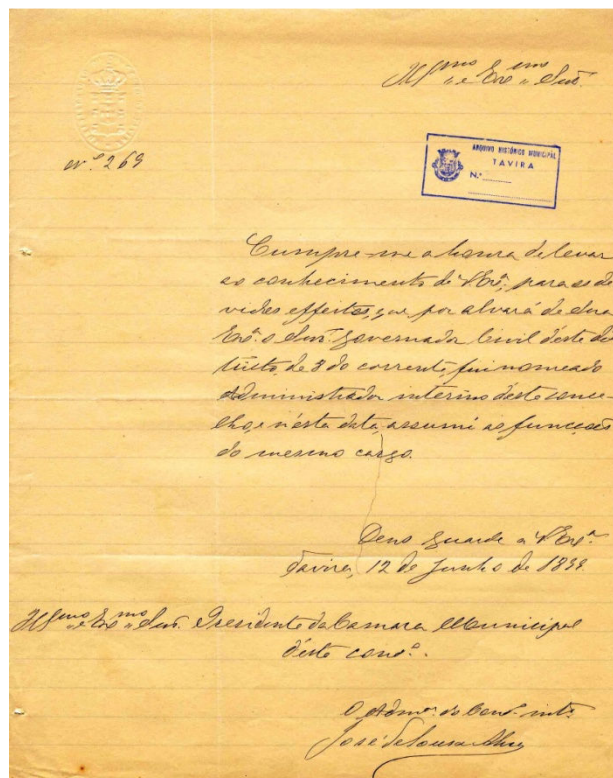 Illmo e Exmo Snr.
Nº 269
ARQUIVO HISTÓRICO MUNICIPAL
TAVIRA
N.º
Cumpre-me a honra de levar
ao conhecimento de V. Exª, para os de
vidos effeitos, que por alvará de Sua
Exª. o Snr. Governador Civil d'este dis
tricto, de 8 do corrente, fui nomeado
Administrador interino deste conce
lho, e n'esta data, assumi as funcções
do mesmo cargo.
Deus guarde a V. Exª
Tavira, 12 de Junho de
Illmo e Exmo Snr. Presidente da Camara Municipal
d'este conc.º
O Admor. do Conc.º intº
José de Sousa